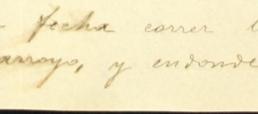 fecha correr
arroyo, y endonde